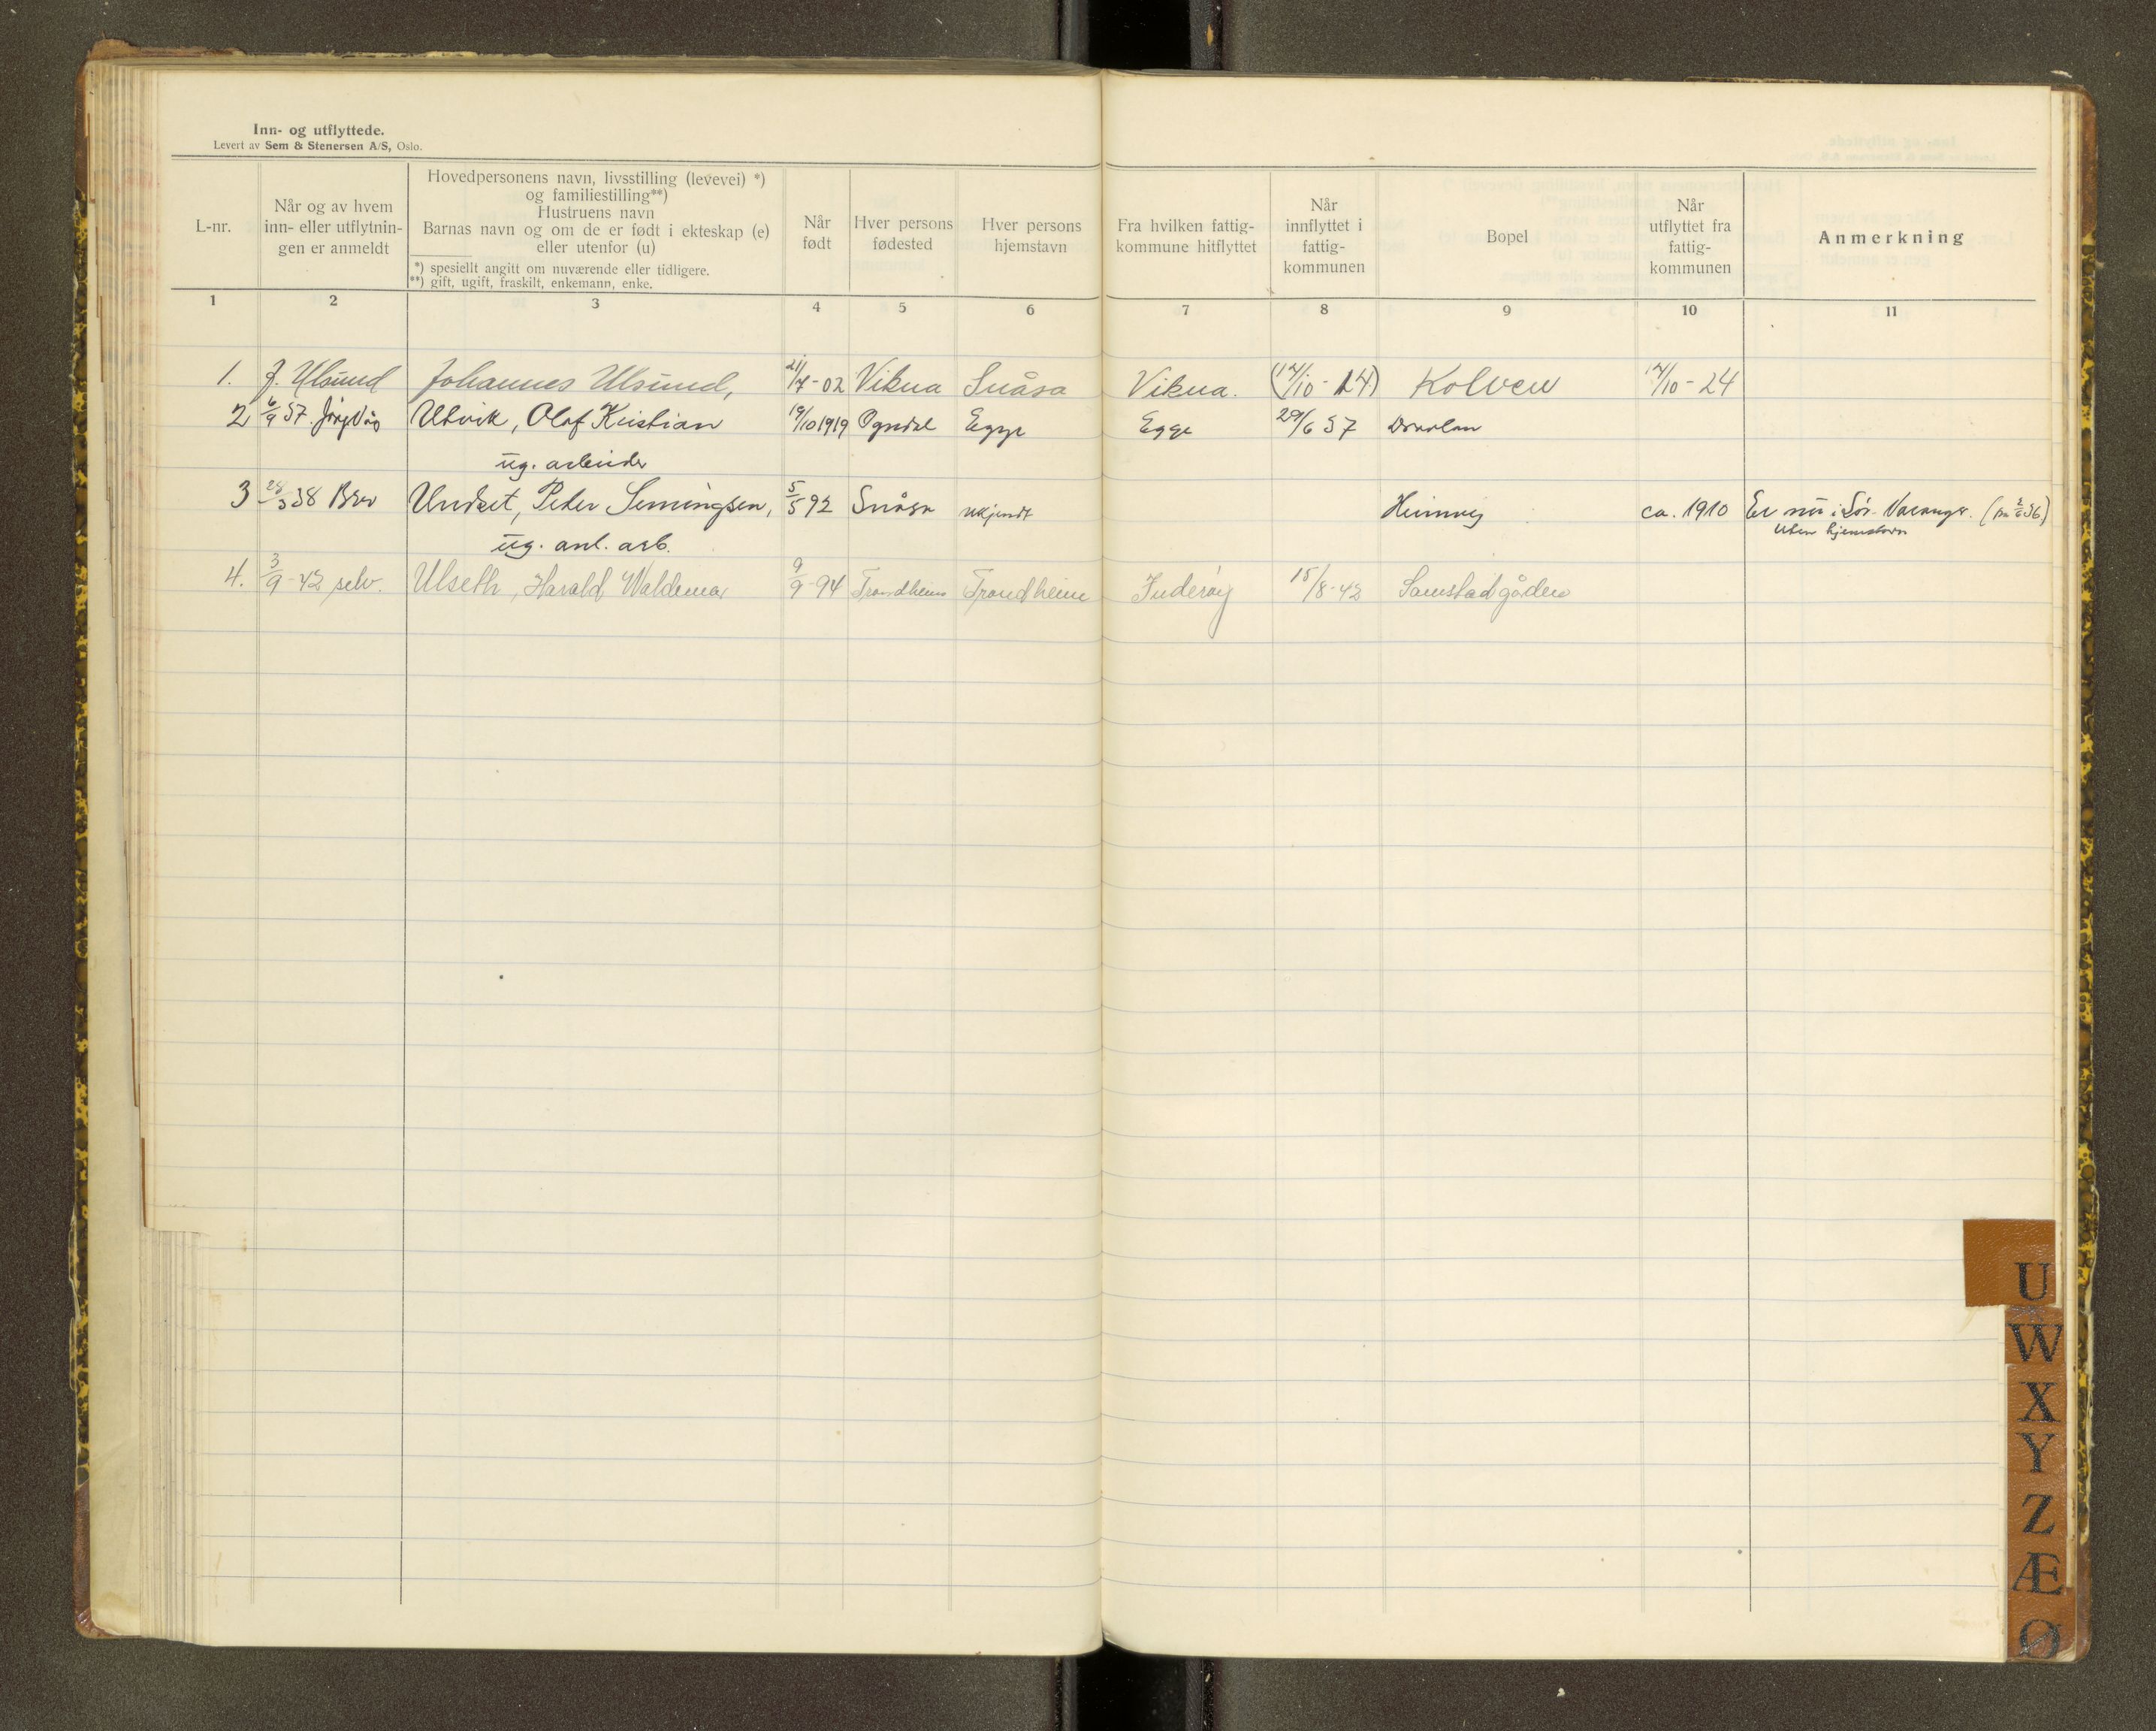 Inn- og utflyttede.
Levert av Sem & Stenersen A/S, Oslo.
L-nr.
Når og av hvem
inn- eller utflytnin-
gen er anmeldt
Hovedpersonens navn, livsstilling (levevei) *)
og familiestilling**)
Hustruens navn
Barnas navn og om de er født i ekteskap (e)
eller utenfor (u)
*) spesiellt angitt om nuværende eller tidligere.
**) gift, ugift, fraskilt, enkemann, enke.
Når
født
Hver persons
fødested
Hver persons
hjemstavn
Fra hvilken fattig-
kommune hitflyttet
Når
innflyttet i
fattig-
kommunen
Bopel
Når
utflyttet fra
fattig-
kommunen
Anmerkning
1 2 3 4 5 6 7 8 9 10 11
1. J. Ulsund Johannes Ulsund, 21/7-02 Vikna Snåsa Vikna. (14/10-24) Kolven 14/10-24
2 6/9 37. Utvik, Olaf Kristian 19/10 1919 Ogndal Egge Egge 29/6 37
ug. arbeider
3 28/3 38 Brev Undset, Peder Semingsen, 5/5 92 Snåsa ukjendt ca. 1910 Er nu i Sør-Varanger.
uten hjemstavn
ug. anl. arb.
4. 3/9-42 selv. Ulseth, Harald Waldemar 9/9-94 Trondheim Trondheim Inderøy 15/8-42 Samstadgården
U
W
X
Y
Z
Æ
Ø